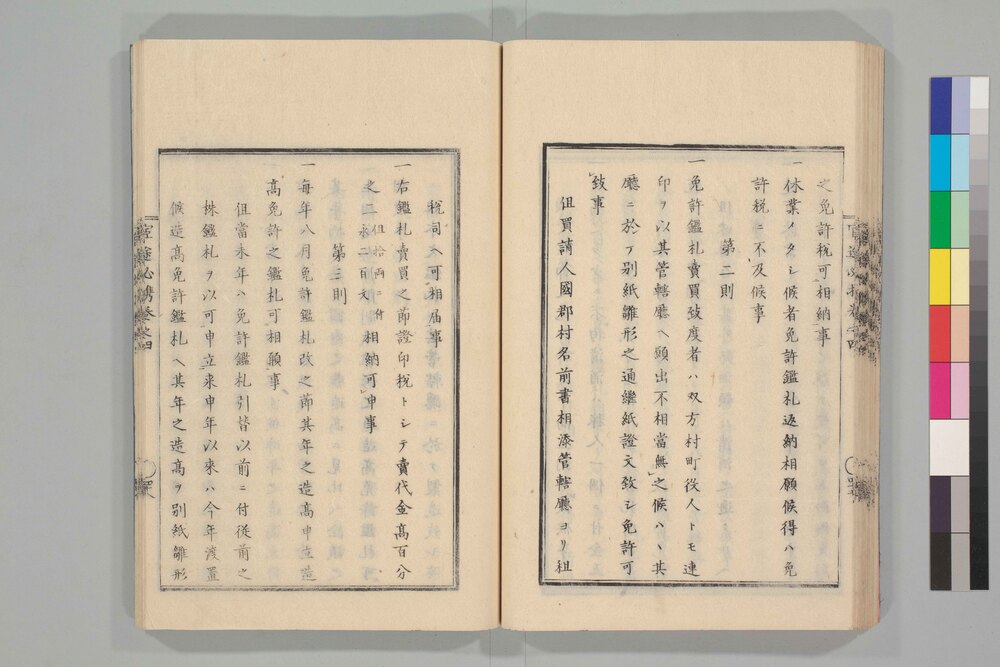 之免許税可相納事
一休業イタシ候者免許鑑札返納相願候得ハ免
許税ニ不及候事
第二則
一免許鑑札賣買致度者ハ双方村町役人トモ連
印ヲ以其管轄廳ヘ願出不相當無之候ハヽ其
廳ニ於テ別紙雛形之通繼紙證文致シ免許可
致事
但買請人國郡村名前書相添管轄廳ヨリ租
税司ヘ可相届事
一右鑑札賣買之節證印税トシテ賣代金高百分
之二
但拾両ニ付
永二百文
相納可申事
第三則
一毎年八月免許鑑札改之節其年之造高申立造
高免許之鑑札可相願事
但當未年ハ免許鑑札引替以前ニ付従前之
株鑑札ヲ以可申立来申年以來ハ今年渡置
候造高免許鑑札ヘ其年之造高ヲ別紙雛形